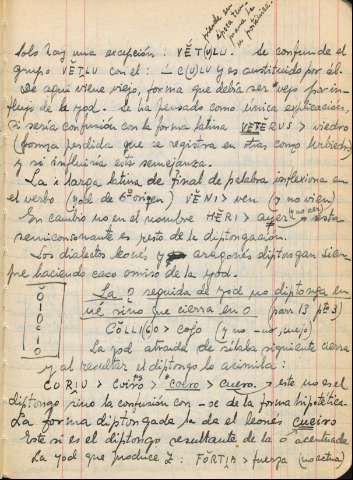 pierde su
época tem-
prana la
postónica.
Solo hay una excepción: VĔT(U)LU. Se confunde el
grupo VĔTLU con el: -C(U)LU y es sustituido por él.
De aquí viene viejo, forma que debía ser vejo por in-
flujo de la yod. Se ha pensado como única explicación,
si sería confusión con la forma latina VETĔRUS > viedro
(forma perdida que se registra en como
y si influiría esta semejanza.
La i larga latina de final de palabra inflexiona en
el verbo (yod de 6º origen) VĒNI > ven (y no vien)
En cambio no en el nombre HĔRI > ayer (y no er) esta
semiconsonante es resto de la diptongación.
Los dialectos leonés y aragonés diptongan siem-
pre haciendo caso omiso de la yod.
La O seguida de yod no diptonga en
ué sino que cierra en O (parr 13 pto 3)
CŎLLI(G)O > cojo (y no -no cuejo)
La yod atraída de sílaba siguiente cierra
y al resultar el diptongo lo asimila:
CORIU > coiro > coiro > cuero. > este no es el
diptongo sino la confusión con -oe de la forma hipotética.
La forma diptongada la da el leonés cueiro
Este si es el diptongo resultante de la o acentuada
La yod que produce Z: FORTIA > fuerza (no